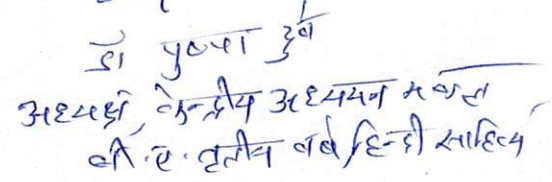 डॉ पुष्पा दुबे
अध्यक्ष, केन्द्रीय अध्ययन मण्डल
बी.ए. तृतीय वर्ष हिन्दी साहित्य